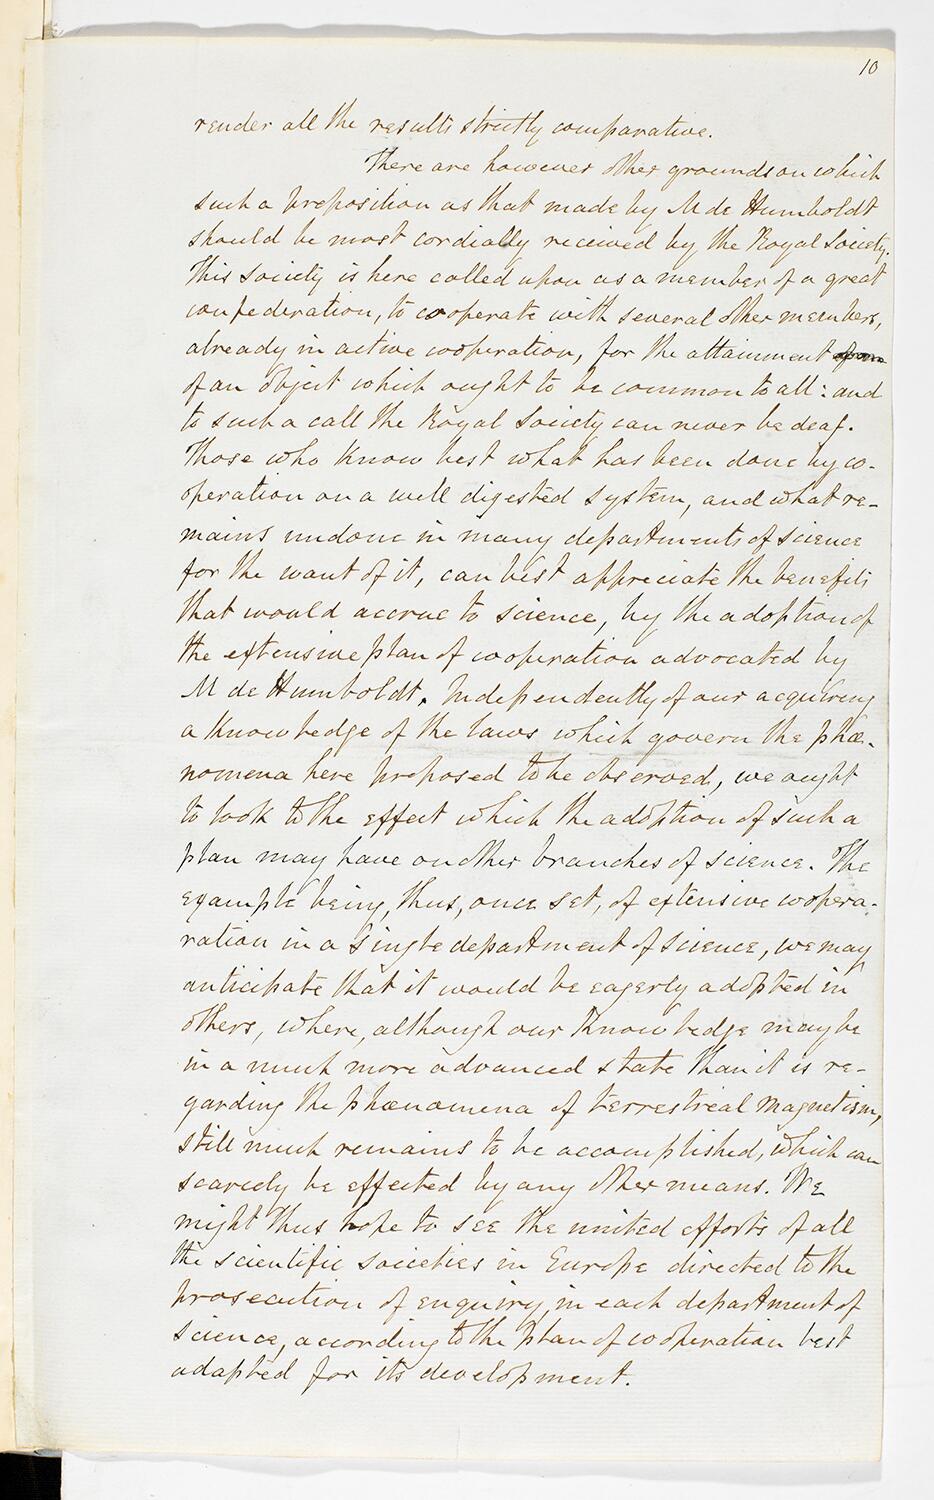 10
render all the results strictly comparative.
There are however other grounds on which
such a proposition as that made by M de Humboldt
should be most cordially received by the Royal Society.
This Society is here called upon as a member of a great
confederation, to cooperate with several other members,
already in active cooperation, for the attainment
of an object which ought to be common to all: and
to such a call the Royal Society can never be deaf.
Those who know best what has been done by co-
operation on a well digested system, and what re-
mains undone in many departments of science
for the want of it, can best appreciate the benefits
that would accrue to science, by the adoption of
the extensive plan of cooperation advocated by
M de Humboldt. Independently of our acquiring
a knowledge of the laws which govern the phæ-
nomena here proposed to be observed, we ought
to look to the effect which the adoption of such a
plan may have on other branches of science. The
example being, thus, once set, of extensive coopera-
ration in a single department of science, we may
anticipate that it would be eagerly adopted in
others, where, although our knowledge may be
in a much more advanced state than it is re-
garding the phænomena of terrestrial magnetism,
still much remains to be accomplished, which can
scarcely be effected by any other means. We
might thus hope to see the united efforts of all
the scientific societies in Europe directed to the
prosecution of enquiry, in each department of
science, according to the plan of cooperation best
adapted for its development.